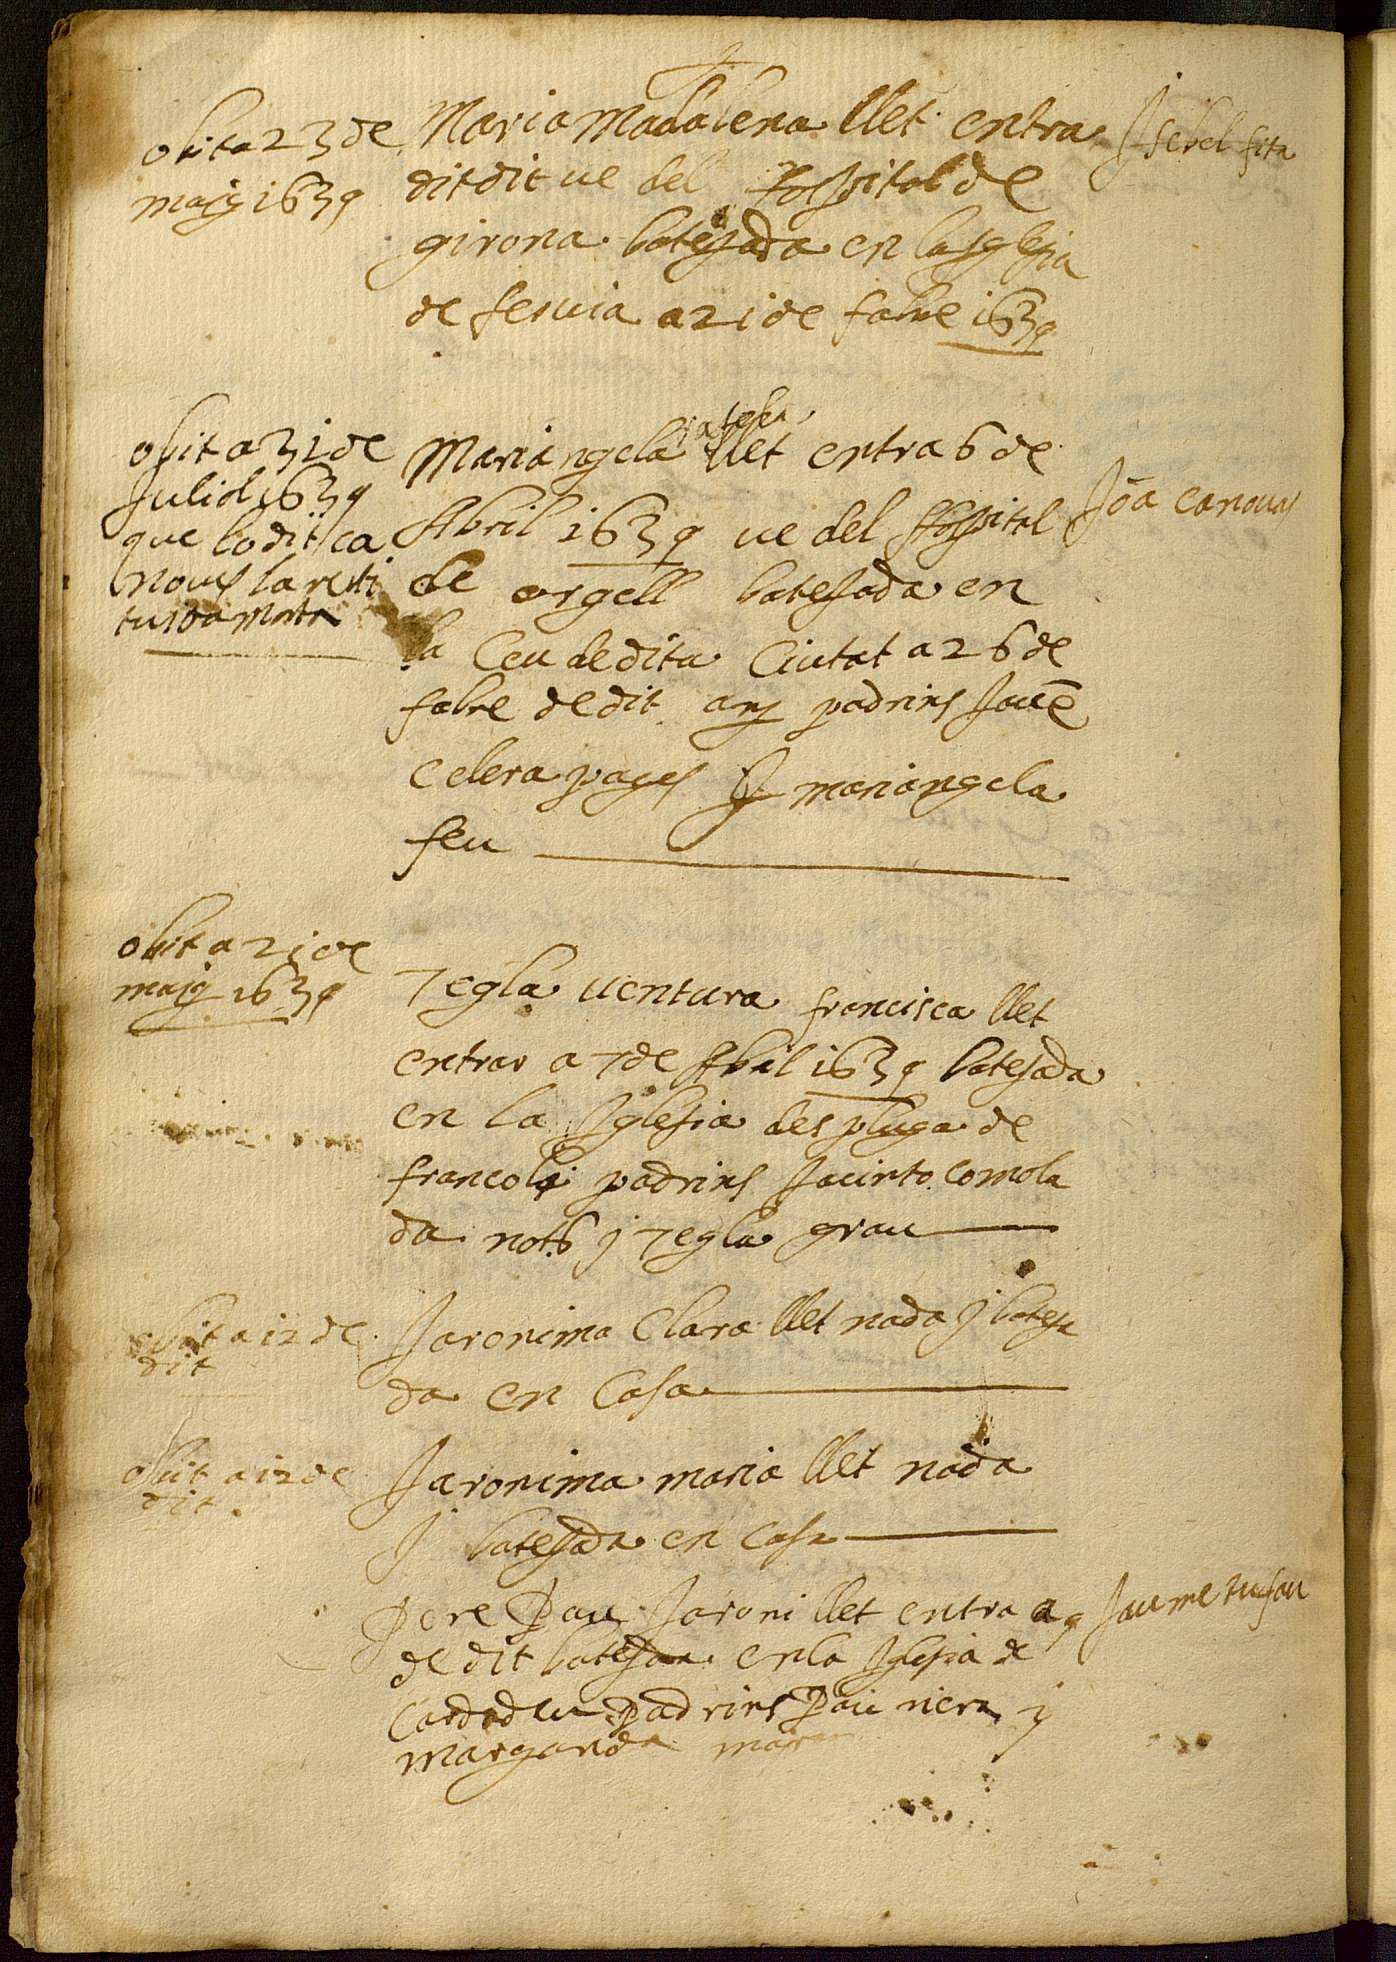 obit a 23 de
maig 1639
Maria Madalena llet entra
dit dit ve del Hospital de
girona batejada en la Iglesia
de servia a 21 de fabre 1639
Isebel fita
obit a 31 de
Juliol 1639
que lo dit Ca
noves la resti
tuida morta
Mariangela llet entra 6 de
Abril 1639 ve del Hospital
de orgell batejada en
la Ceu de dita Ciutat a 26 de
fabre de dit any padrins Jaume
Celera pages y mariangela
feu
Joā Canovas
obit a 21 de
maig 1639
Tegla ventura francisca llet
entrar a 7 de Abril 1639 batejada
en la Iglesia des pluga de
francoli padrins Jacinto Comola
da not y Tegla grau
obit a 12 de
dit
Jaronima Clara llet nada y bateja
da en Casa
obit a 12 de
dit
Jaronima maria llet nada
y batejada en Casa
Pere Pau Jaroni llet entra a 9
de dit batejat en la Iglesia de
Cardadeu padrins Pau riera y
Margarida
Jaume